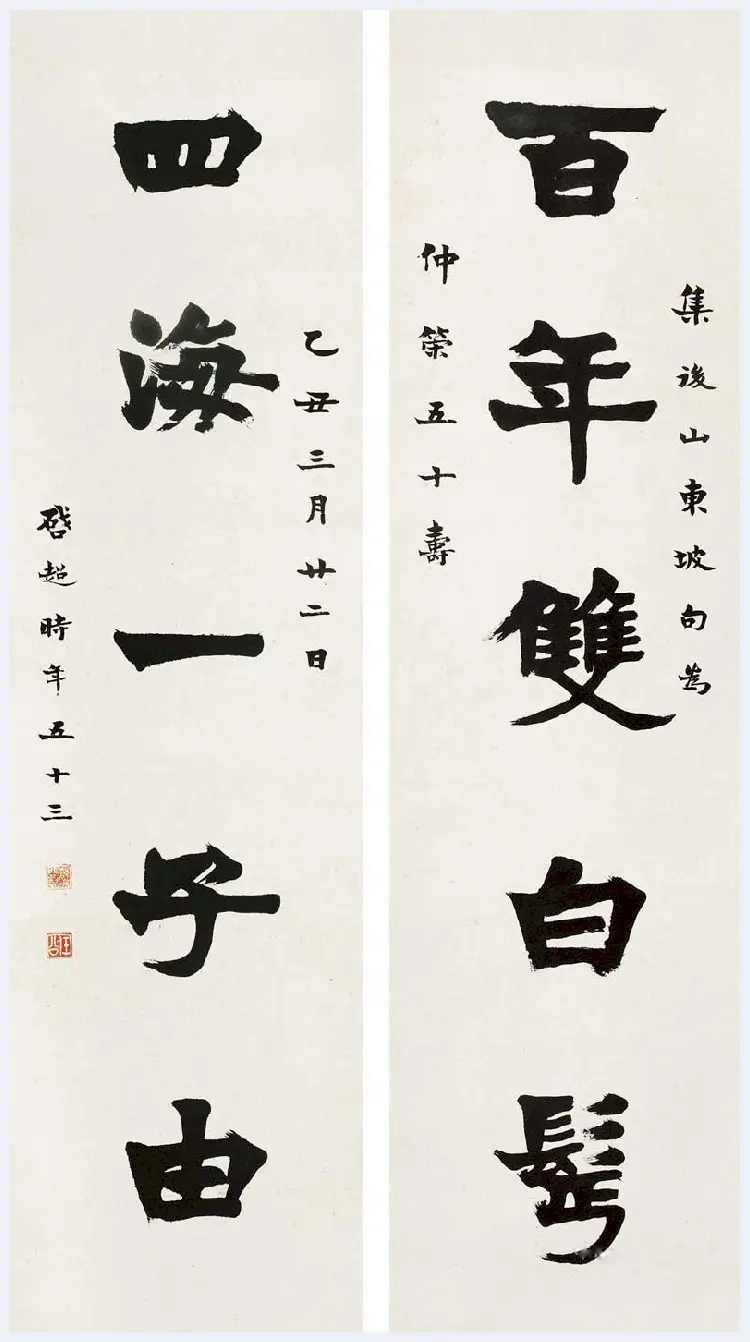 集後山東坡句為
百年雙白鬢
仲策五十壽
乙丑三月廿二日
四海一子由
啓超時年五十三
任公